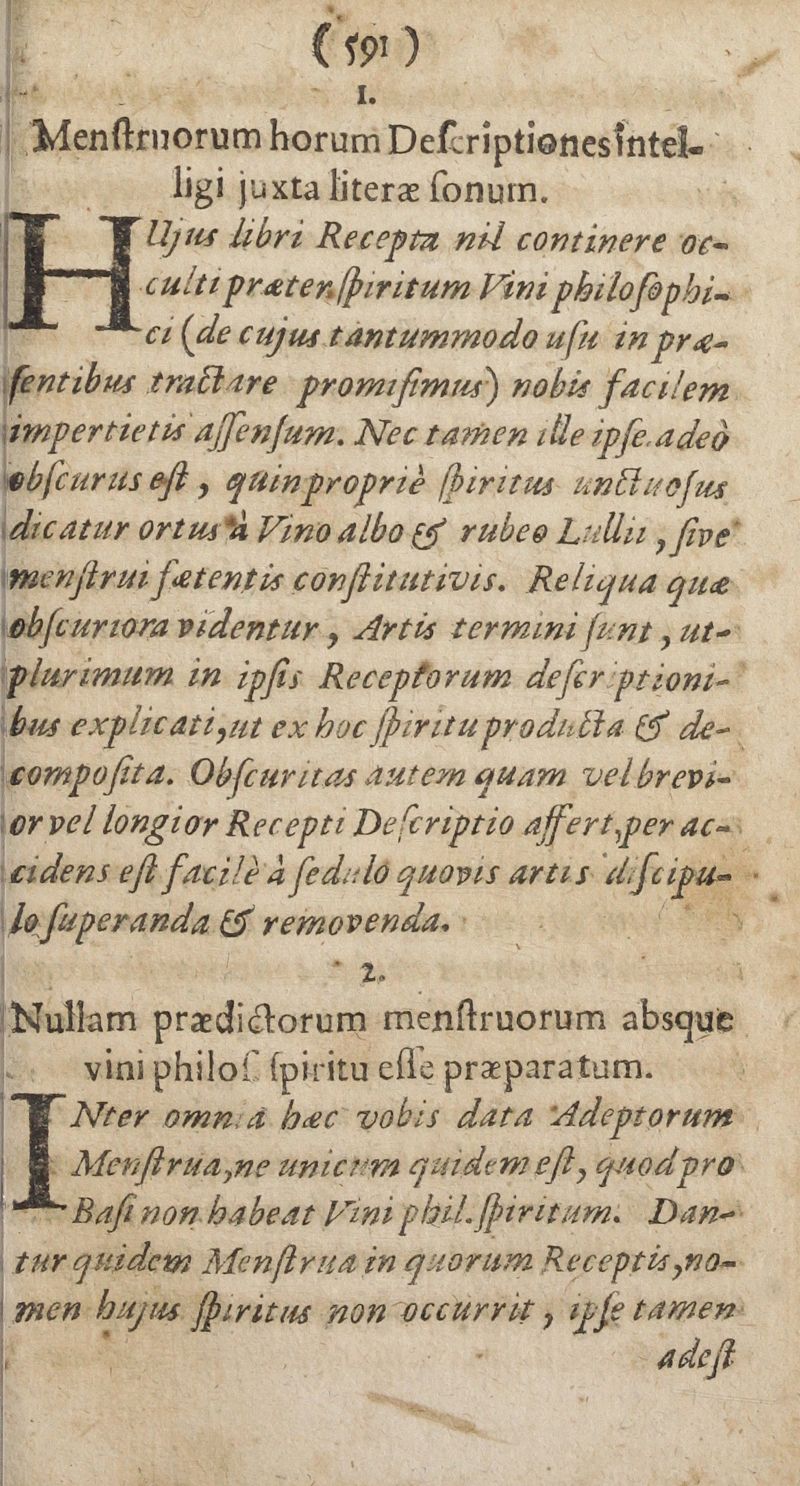 ( 591 )
1.
Menſtruorum horum Deſcriptiones intel-
ligi juxta literæ ſonum.
HUjus libri Recepta nil continere oc-
culti præter ſpiritum Vini philoſophi-
ci (de cujus tantummodo uſu in præ-
ſentibus tractare promiſimus) nobis facilem
impertietis aſſenſum. Nec tamen ille ipſe adeò
obſcurus eſt, quin propriè ſpiritus unctuoſus
dicatur ortus à Vino albo & rubeo Lullii, ſive
menſtrui fætentis conſtitutivis. Reliqua quæ
obſcuriora videntur, Artis termini ſunt, ut-
plurimum in ipſis Receptorum deſcriptioni-
bus explicati, ut ex hoc ſpiritu producta & de-
compoſita. Obſcuritas autem quam vel brevi-
or vel longior Recepti Deſcriptio affert, per ac-
cidens eſt facilè à ſedulo quovis artis diſcipu-
lo ſuperanda & removenda.
2.
Nullam prædictorum menſtruorum absque
vini philoſ. ſpiritu eſſe præparatum.
INter omnia hæc vobis data Adeptorum
Menſtrua, ne unicum quidem eſt, quod pro
Baſi non habeat Vini phil. ſpiritum. Dan-
tur quidem Menſtrua in quorum Receptis, no-
men hujus ſpiritus non occurrit, ipſe tamen
adeſt